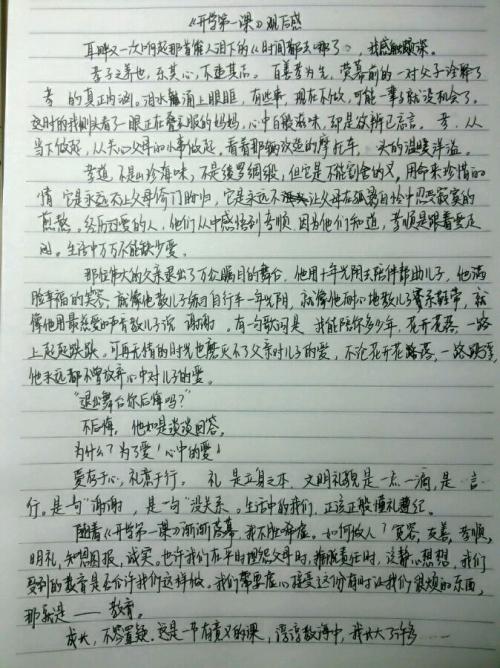 《开学第一课》观后感
耳畔又一次响起那首催人泪下的《时间都去哪了》，我感触颇深。
孝子之养也，乐其心，不违其志。百善孝为先，荧幕前的一对父子诠释了
孝 的真正内涵。泪水触涌上眼眶，有些事，现在不做，可能一辈子就没机会了。
这时的我侧头看了一眼正在叠衣服的妈妈，心中百般滋味，却是欲辨已忘言。孝，从
当下做起，从关心父母的小事做起，看着那辆改造的摩托车， 头的温暖洋溢。
孝道，不是山珍海味，不是绫罗绸缎，但它是不能割舍的义，用命来珍惜的
情 它是永远不让父母倚门盼归，它是永远不让父母在孤独自怜中忍受寂寞的
煎熬。经历过爱的人，他们从中感悟到孝顺，因为他们知道，孝顺是跟着爱走
的。生活中万万不能缺少爱。
那位伟大的父亲退出了万众瞩目的舞台，他用十年光阴去陪伴帮助儿子，他满
脸幸福的笑容，就像他教儿子练习自行车一年光阴，就像他耐心地教儿子系鞋带，就
像他用最慈爱的声音教儿子说 谢谢 。有一句歌词是 我能陪你多少年，花开花落，一路
上起起跌跌。可再无情的时光也磨灭不了父亲对儿子的爱，不论花开花落，一路跌荡，
他永远都不曾放弃心中对儿子的爱。
“退出舞台你后悔吗？”
不后悔，他如是淡淡回答。
为什么？为了爱！心中的爱！
爱存于心，礼焘于行。 礼 是立身之本，文明礼貌是一点一滴，是 言
行。是一句“谢谢 ，是一句“没关系。生活中的我们，正该正般懂礼遵纪。
随着《开学第一课》渐渐落幕，我不胜唏嘘。如何做人？宽容，友善，孝顺，
明礼，知恩图报，诚实。也许我们在平时埋怨父母时，推脱责任时，该静心想想，我们
受到的教育是否允许我们这样做。我们需要虚心接受这份有时让我们很烦的东西，
那就是——教育。
成长，不容置疑。这是一节有意义的课，谆谆教诲中，我长大了许多……